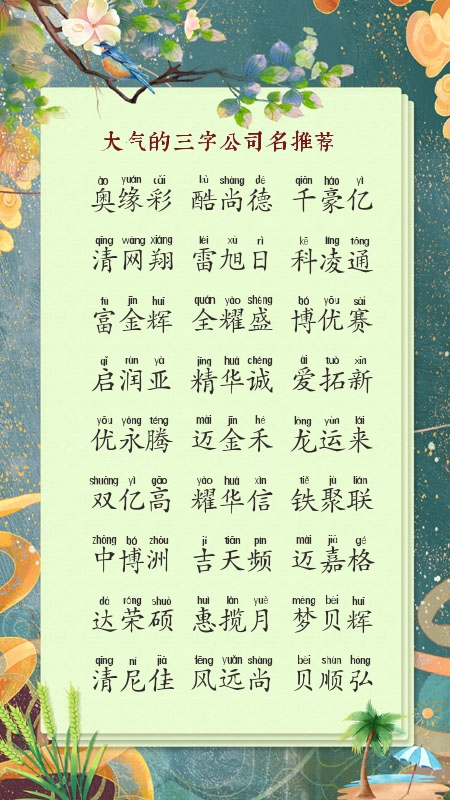 大气的三字公司名推荐
ào yuán cǎi kù shàng dé qiān háo yì
奥缘彩 酷尚德 千豪亿
qīng wǎng xiáng léi xù rì kē líng tōng
清网翔 雷旭日 科凌通
fù jīn huī quán yào shèng bó yōu sài
富金辉 全耀盛 博优赛
qǐ rùn yà jīng huá chéng ài tuò xīn
启润亚 精华诚 爱拓新
yōu yǒng téng mài jīn hé lóng yùn lái
优永腾 迈金禾 龙运来
shuāng yì gāo yào huá xìn tiě jù lián
双亿高 耀华信 铁聚联
zhōng bó zhōu jí tiān pín mài jiā gé
中博洲 吉天频 迈嘉格
dá róng shuò huì lǎn yuè mèng bèi huī
达荣硕 惠揽月 梦贝辉
qīng ní jiā fēng yuǎn shàng bèi shùn hóng
清尼佳 风远尚 贝顺弘